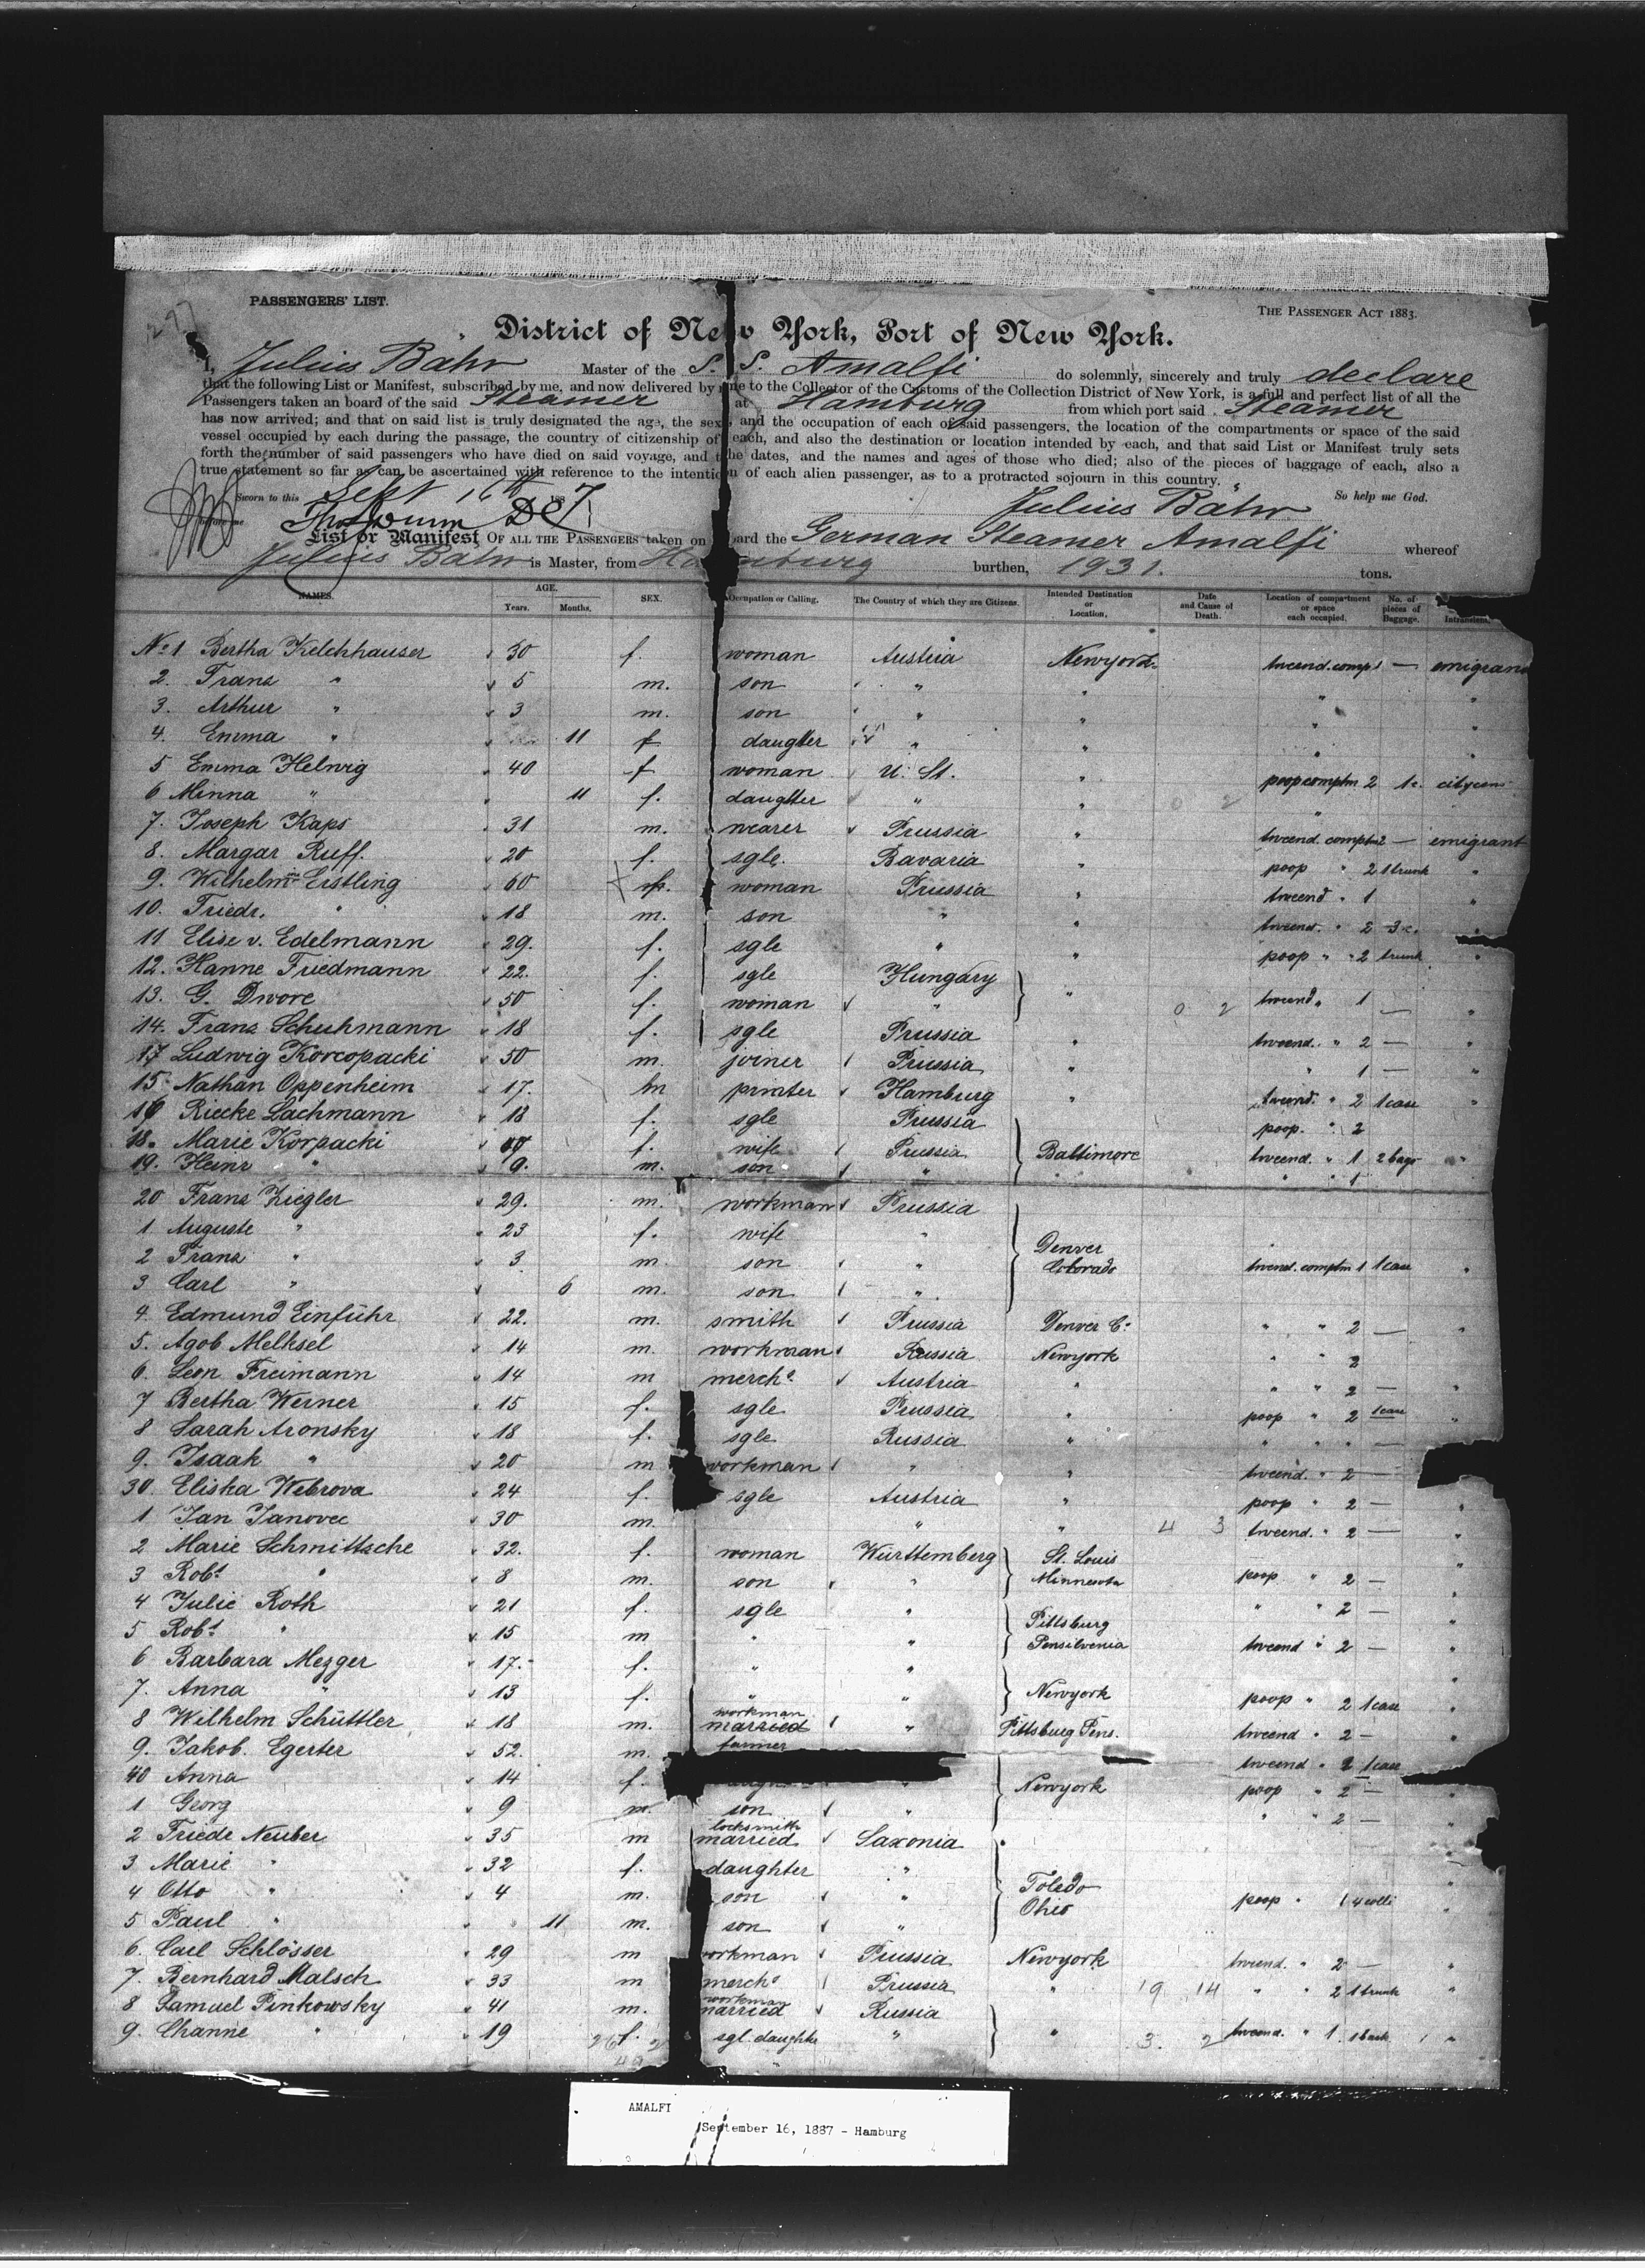 PASSENGERS' LIST.
THE PASSENGER ACT 1883.
District of New York, Port of New York.
I, Julius Bahr Master of the S. S. Amalfi do solemnly, sincerely and truly declare
that the following List or Manifest, subscribed by me, and now delivered by me to the Collector of the Customs of the Collection District of New York, is a full and perfect list of all the
Passengers taken an board of the said Steamer at Hamburg from which port said Steamer
has now arrived; and that on said list is truly designated the age, the sex, and the occupation of each of said passengers, the location of the compartments or space of the said
vessel occupied by each during the passage, the country of citizenship of each, and also the destination or location intended by each, and that said List or Manifest truly sets
forth the number of said passengers who have died on said voyage, and the dates, and the names and ages of those who died; also of the pieces of baggage of each, also a
true statement so far as can be ascertained with reference to the intention of each alien passenger, as to a protracted sojourn in this country.
Sworn to this Sept 16th 7 So help me God.
before me Julius Bahr
List or Manifest OF ALL THE PASSENGERS taken on board the German Steamer Amalfi whereof
Julius Bahr is Master, from Hamburg burthen, 1931. tons.
NAMES. AGE. Years. Months. SEX. Occupation or Calling. The Country of which they are Citizens. Intended Destination or Location. Date and Cause of Death. Location of compartment or space each occupied. No. of pieces of Baggage.
No. 1 Bertha Kelchhauser 30 f. woman Austria Newyork tweend. compt — emigrant
2. Franz " 5 m. son " " " "
3. Arthur " 3 m. son " " " "
4. Emma " 11 f daugtter " " " "
5 Emma Helwig 40 f woman U. St. " poop comptm 2 1c. citycens
6 Minna " 11 f. daugtter " " "
7. Joseph Kaps 31 m. wearer Prussia " tweend. comptm 2 — emigrant
8. Margar Ruff. 20 f. sgle. Bavaria " poop " 2 1 trunk "
9. Wilhelmne Eistling 60 f. woman Prussia " tweend " 1 "
10. Friedr. " 18 m. son " " tweend. " 2 3 c. "
11 Elise v. Edelmann 29. f. sgle " " poop " 2 trunk "
12. Hanne Friedmann 22. f. sgle Hungary "
13. G. Dwore 50 f. woman " tweend " 1 — "
14. Franz Schuhmann 18 f. sgle Prussia " tweend. " 2 — "
17 Ludwig Korcopacki 50 m. joiner Prussia " " 1 — "
15 Nathan Oppenheim 17. m printer Hamburg " tweend. " 2 1 case "
16 Riecke Lachmann 18 f. sgle Prussia poop. " 2
18. Marie Korpacki f. wife Prussia Baltimore tweend. " 1 2 bags "
19. Heinr " 9. m. son " " " 1
20 Franz Ziegler 29. m. workman Prussia
1 Auguste " 23 f. wife " Denver
2 Franz " 3 m. son " Colorado tweend. comptm 1 1 case "
3 Carl " 6 m. son "
4. Edmund Einführ 22. m. smith Prussia Denver C. " " 2 — "
5. Agob Melksel 14 m. workman Russia Newyork " " 2
6. Leon Freimann 14 m merchs. Austria " " " 2 — "
7 Bertha Werner 15 f. sgle Prussia " poop " 2 1 case "
8 Sarah Aronsky 18 f. sgle Russia " " " " —
9. Isaak " 20 m workman " " tweend. " 2 —
30. Eliska Webrova 24 f. sgle Austria " poop " 2 — "
1 Jan Janovec 30 m. " " 4 3 tweend. " 2 — "
2 Marie Schmittsche 32. f. woman Württemberg St. Louis
3 Robt " 8 m. son " Minnesota poop " 2 — "
4 Julie Roth 21 f. sgle " Pittsburg " " 2 —
5 Robt " 15 m " " Pensilvenia tweend " 2 — "
6 Barbara Mezger 17. f. " "
7. Anna " 13 f. " " Newyork poop " 2 1 case "
8 Wilhelm Schüttler 18 m. workman married " Pittsburg Pens. tweend " 2 — "
9. Jakob. Egerter 52. m. farmer tweend " 2 1 case
40 Anna 14 f. " Newyork poop " 2 — "
1 Georg 9 m. son " " " 2 —
2 Friedr Neuber 35 m locksmith married Saxonia
3 Marie " 32 f. daughter " Toledo
4 Otto " 4 m. son " Ohio poop " 1 4 colli "
5 Paul " 11 m. son "
6. Carl Schlösser 29 m workman Prussia Newyork tweend. " 2 — "
7. Bernhard Malsch 33 m merchs Prussia " 19 14 " " 2 1 trunk "
8 Samuel Pinkowsky 41 m. workman married Russia
9. Channe " 19 f. sgl. daughte " " 3. 2 tweend. " 1. "
AMALFI
September 16, 1887 - Hamburg